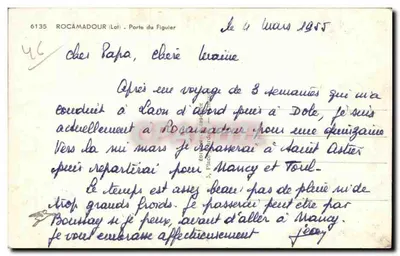 6135 ROCAMADOUR (Lot) - Porte du Figuier
le 4 mars 1955
46
cher Papa, chère Maine
Après un voyage de 3 semaines qui m'a
conduit à Laon d'abord puis à Dole, je suis
actuellement à Rocamadour pour une quinzaine
Vers la mi mars je repasserai à Saint Astier
puis repartirai pour Nancy et Toul-
Le temps est assez beau; pas de pluie ni de
trop grands froids. Je passerai peut être par
Boussay si je peux, avant d'aller à Nancy.
Je vous embrasse affectueusement